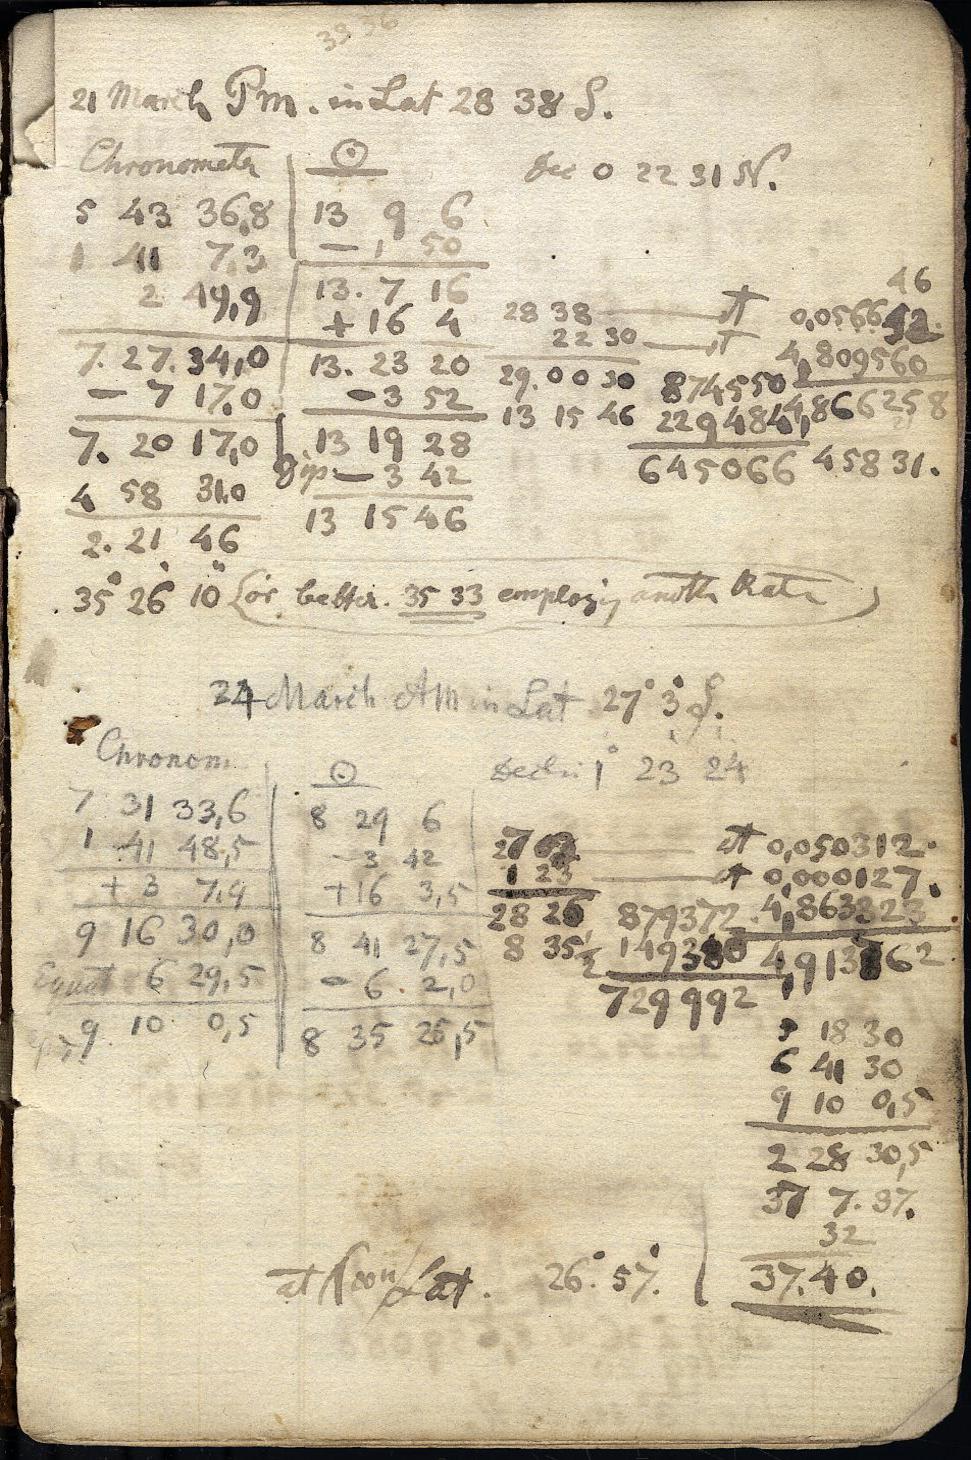 39 36
21 March Pm. in Lat 28 38 S.
Chronometer ☉ Dec 0 22 31 N.
5 43 36,8 13 9 6
1 41 7,3 — 1 50
2 49,9 13. 7 16
+ 16 4
7. 27. 34,0 13. 23 20
— 7 17,0 — 3 52
7. 20 17,0 13 19 28
Dip — 3 42
4 58 31,0 13 15 46
2. 21 46
46
28 38
22 30 4,809560
29. 00 30 874550 4,866258
13 15 46
645066 45831.
35° 26' 10" (or better. 35 33 employing another Rate)
24 March AM in Lat 27° 3' S.
Chronom. ☉ Decln: 1° 23 24
7 31 33,6 8 29 6
1 41 48,5 — 3 42
+ 3 7,9 + 16 3,5
9 16 30,0 8 41 27,5
Equat 6 29,5 — 6. 2,0
9 10 0,5 8 35 25,5
0,050312.
1 23 0,000127.
28 26 879372 4,863323
8 35½
729992
18 30
6 41 30
9 10 0,5
2 28 30,5
37 7. 37.
32
at Noon Lat. 26°. 57'. 37. 40.